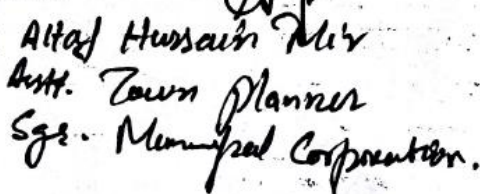 Altaf Hussain Mir
Astt. Town Planner
Sgr. Municipal Corporation.